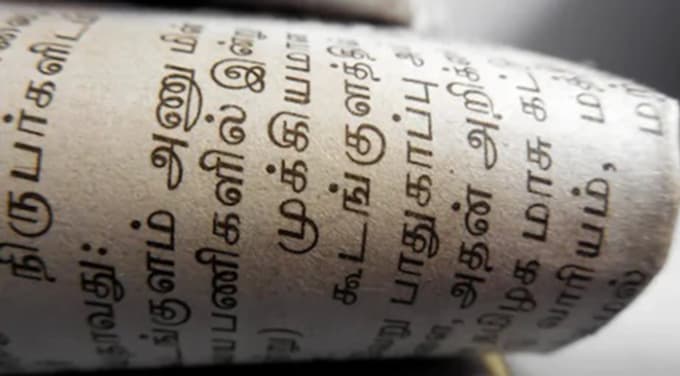 நிருபர்களிட
ாவது:
ங்குளம் அணு மின்
யபணிகளில் இன்று
முக்கியமான
கூடங்குளத்தில்
று பாதுகாப்பு
அதன் அறிக்கை
தமிழக மாசு கட்டு
வாரியம், மத்